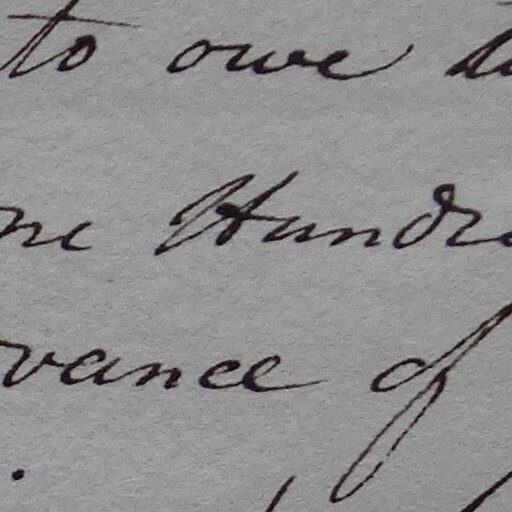 to owe
ne Hundre
vance of